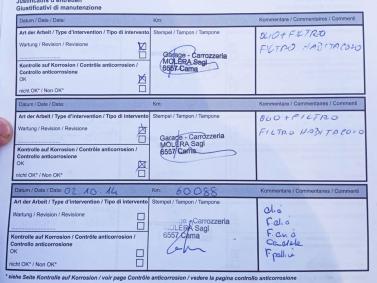 Justificatifs d'entretien
Giustificativi di manutenzione
Datum / Date / Data: Km: Kommentare / Commentaires / Commenti
Art der Arbeit / Type d'intervention / Tipo di intervento Stempel / Tampon / Tampone OLIO + FILTRO
FILTRO ABITACOLO
Wartung / Revision / Revisione
Garage - Carrozzeria
MOLERA Sagl
6557 Cama
Kontrolle auf Korrosion / Contrôle anticorrosion /
Controllo anticorrosione
OK
nicht OK* / Non OK*
Datum / Date / Data: Km: Kommentare / Commentaires / Commenti
Art der Arbeit / Type d'intervention / Tipo di intervento Stempel / Tampon / Tampone OLIO + FILTRO
FILTRO ABITACOLO
Wartung / Revision / Revisione
Garage - Carrozzeria
MOLERA Sagl
6557 Cama
Kontrolle auf Korrosion / Contrôle anticorrosion /
Controllo anticorrosione
OK
nicht OK* / Non OK*
Datum / Date / Data: 02.10.14 Km: 60088 Kommentare / Commentaires / Commenti
Art der Arbeit / Type d'intervention / Tipo di intervento Stempel / Tampon / Tampone
Wartung / Revision / Revisione
Carrozzeria
MOLERA Sagl
6557 Cama
Kontrolle auf Korrosion / Contrôle anticorrosion /
Controllo anticorrosione
OK
nicht OK* / Non OK*
olio
Candele
* siehe Seite Kontrolle auf Korrosion / voir page Contrôle anticorrosion / vedere la pagina controllo anticorrosione